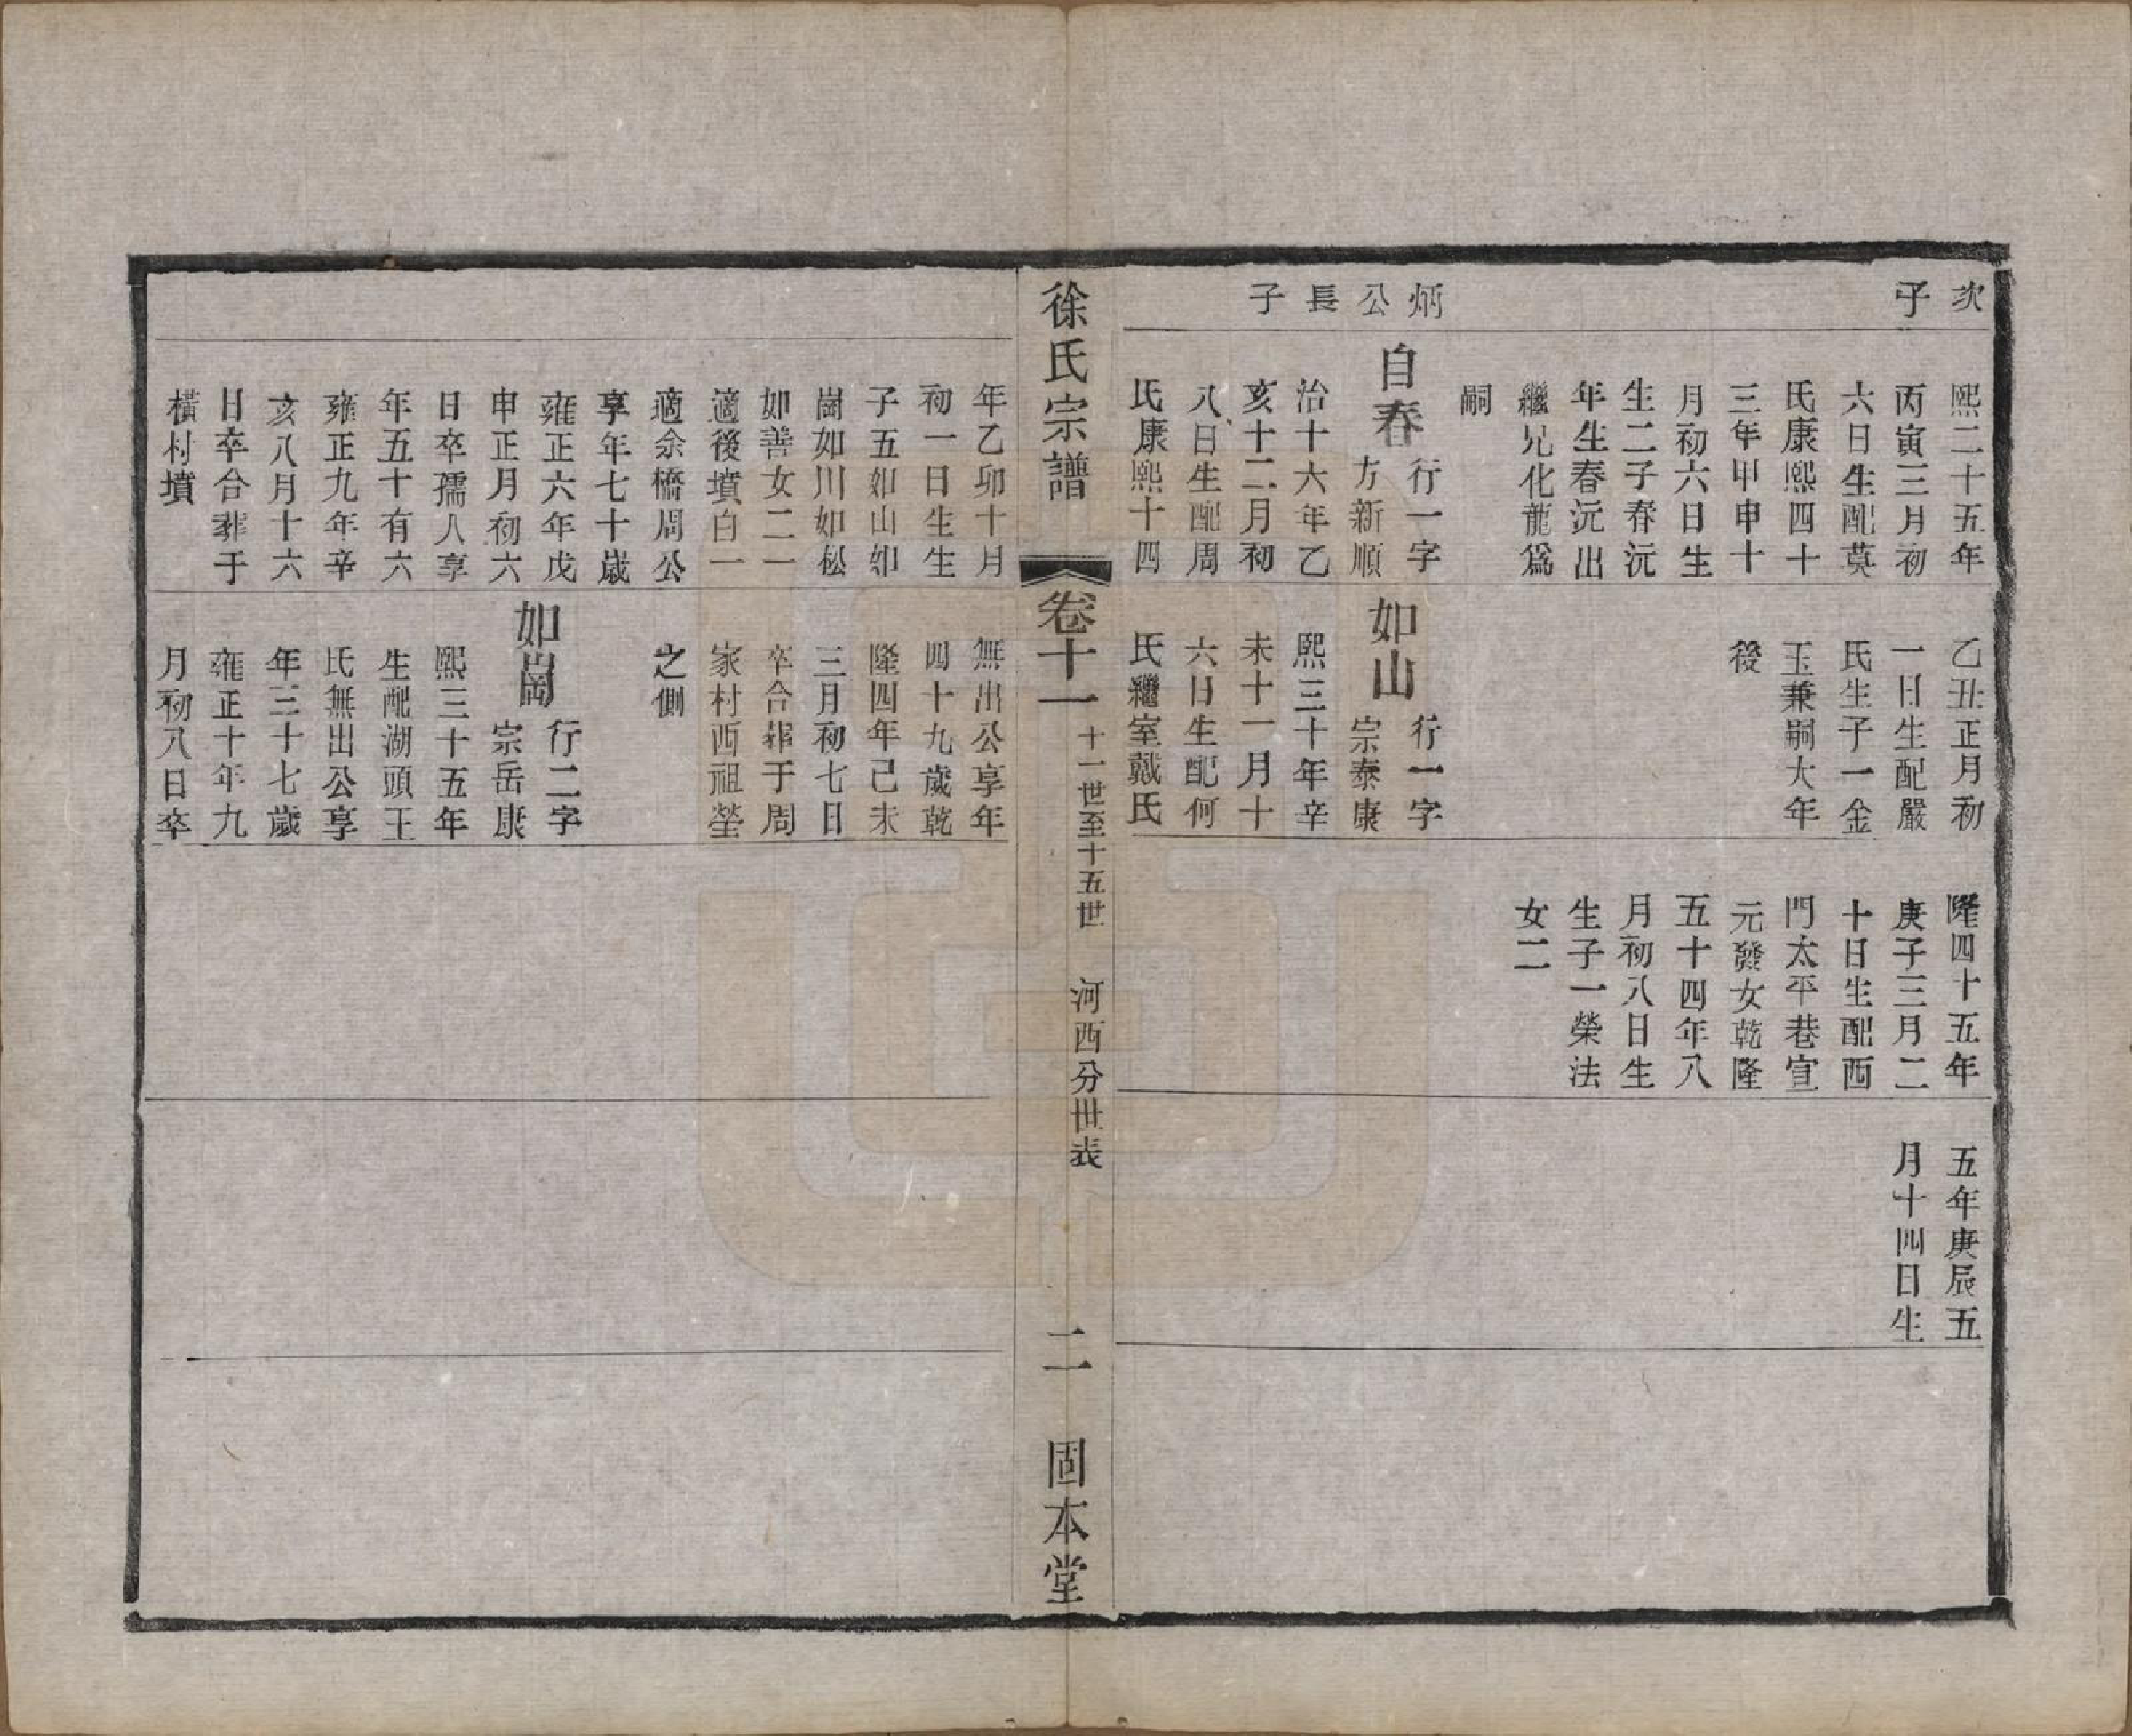 次
子
炳
公
長
子
熙二十五年
丙寅三月初
六日生配莫
氏康熙四十
三年甲申十
月初六日生
生二子春沅
年生春沅出
繼兄化龍爲
嗣
自春
行一字
方新順
治十六年乙
亥十二月初
八日生配周
氏康熙十四
乙丑正月初
一日生配嚴
氏生子一金
玉兼嗣大年
後
如山
行一字
宗泰康
熙三十年辛
未十一月十
六日生配何
氏繼室戴氏
隆四十五年
庚子三月二
十日生配西
門太平巷宣
元發女乾隆
五十四年八
月初八日生
生子一榮法
女二
五年庚辰五
月十四日生
徐氏宗譜
卷十一
十一世至十五世
河西分世表
二
固本堂
年乙卯十月
初一日生生
子五如山如
崗如川如松
如善女二一
適後墳白一
適余橋周公
享年七十歲
雍正六年戊
申正月初六
日卒孺人享
年五十有六
雍正九年辛
亥八月十六
日卒合葬于
橫村墳
無出公享年
四十九歲乾
隆四年己未
三月初七日
卒合葬于周
家村西祖塋
之側
如崗
行二字
宗岳康
熙三十五年
生配湖頭王
氏無出公享
年三十七歲
雍正十年九
月初八日卒